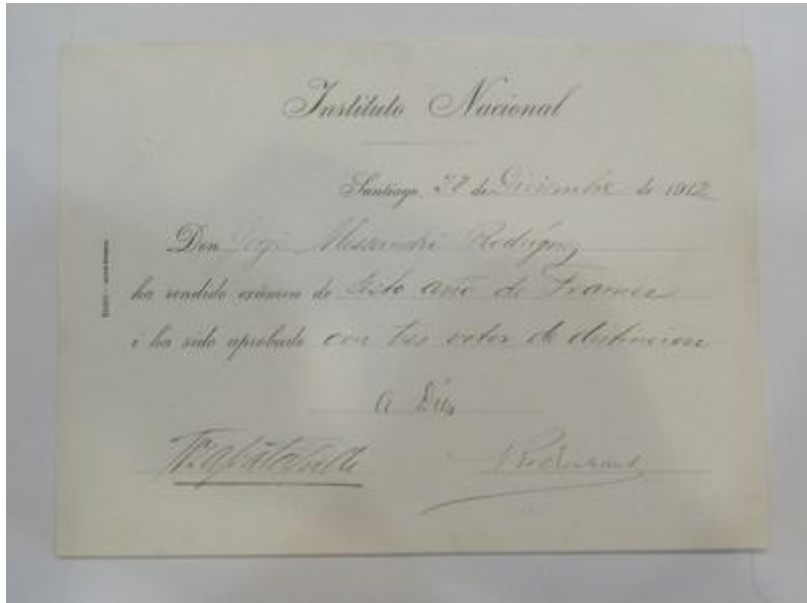 Instituto Nacional
Santiago, 22 de Diciembre de 1912
Don Jorge Alessandri Rodríguez
ha rendido exámen de sesto año de Frances
i ha sido aprobado con tres votos de distincion